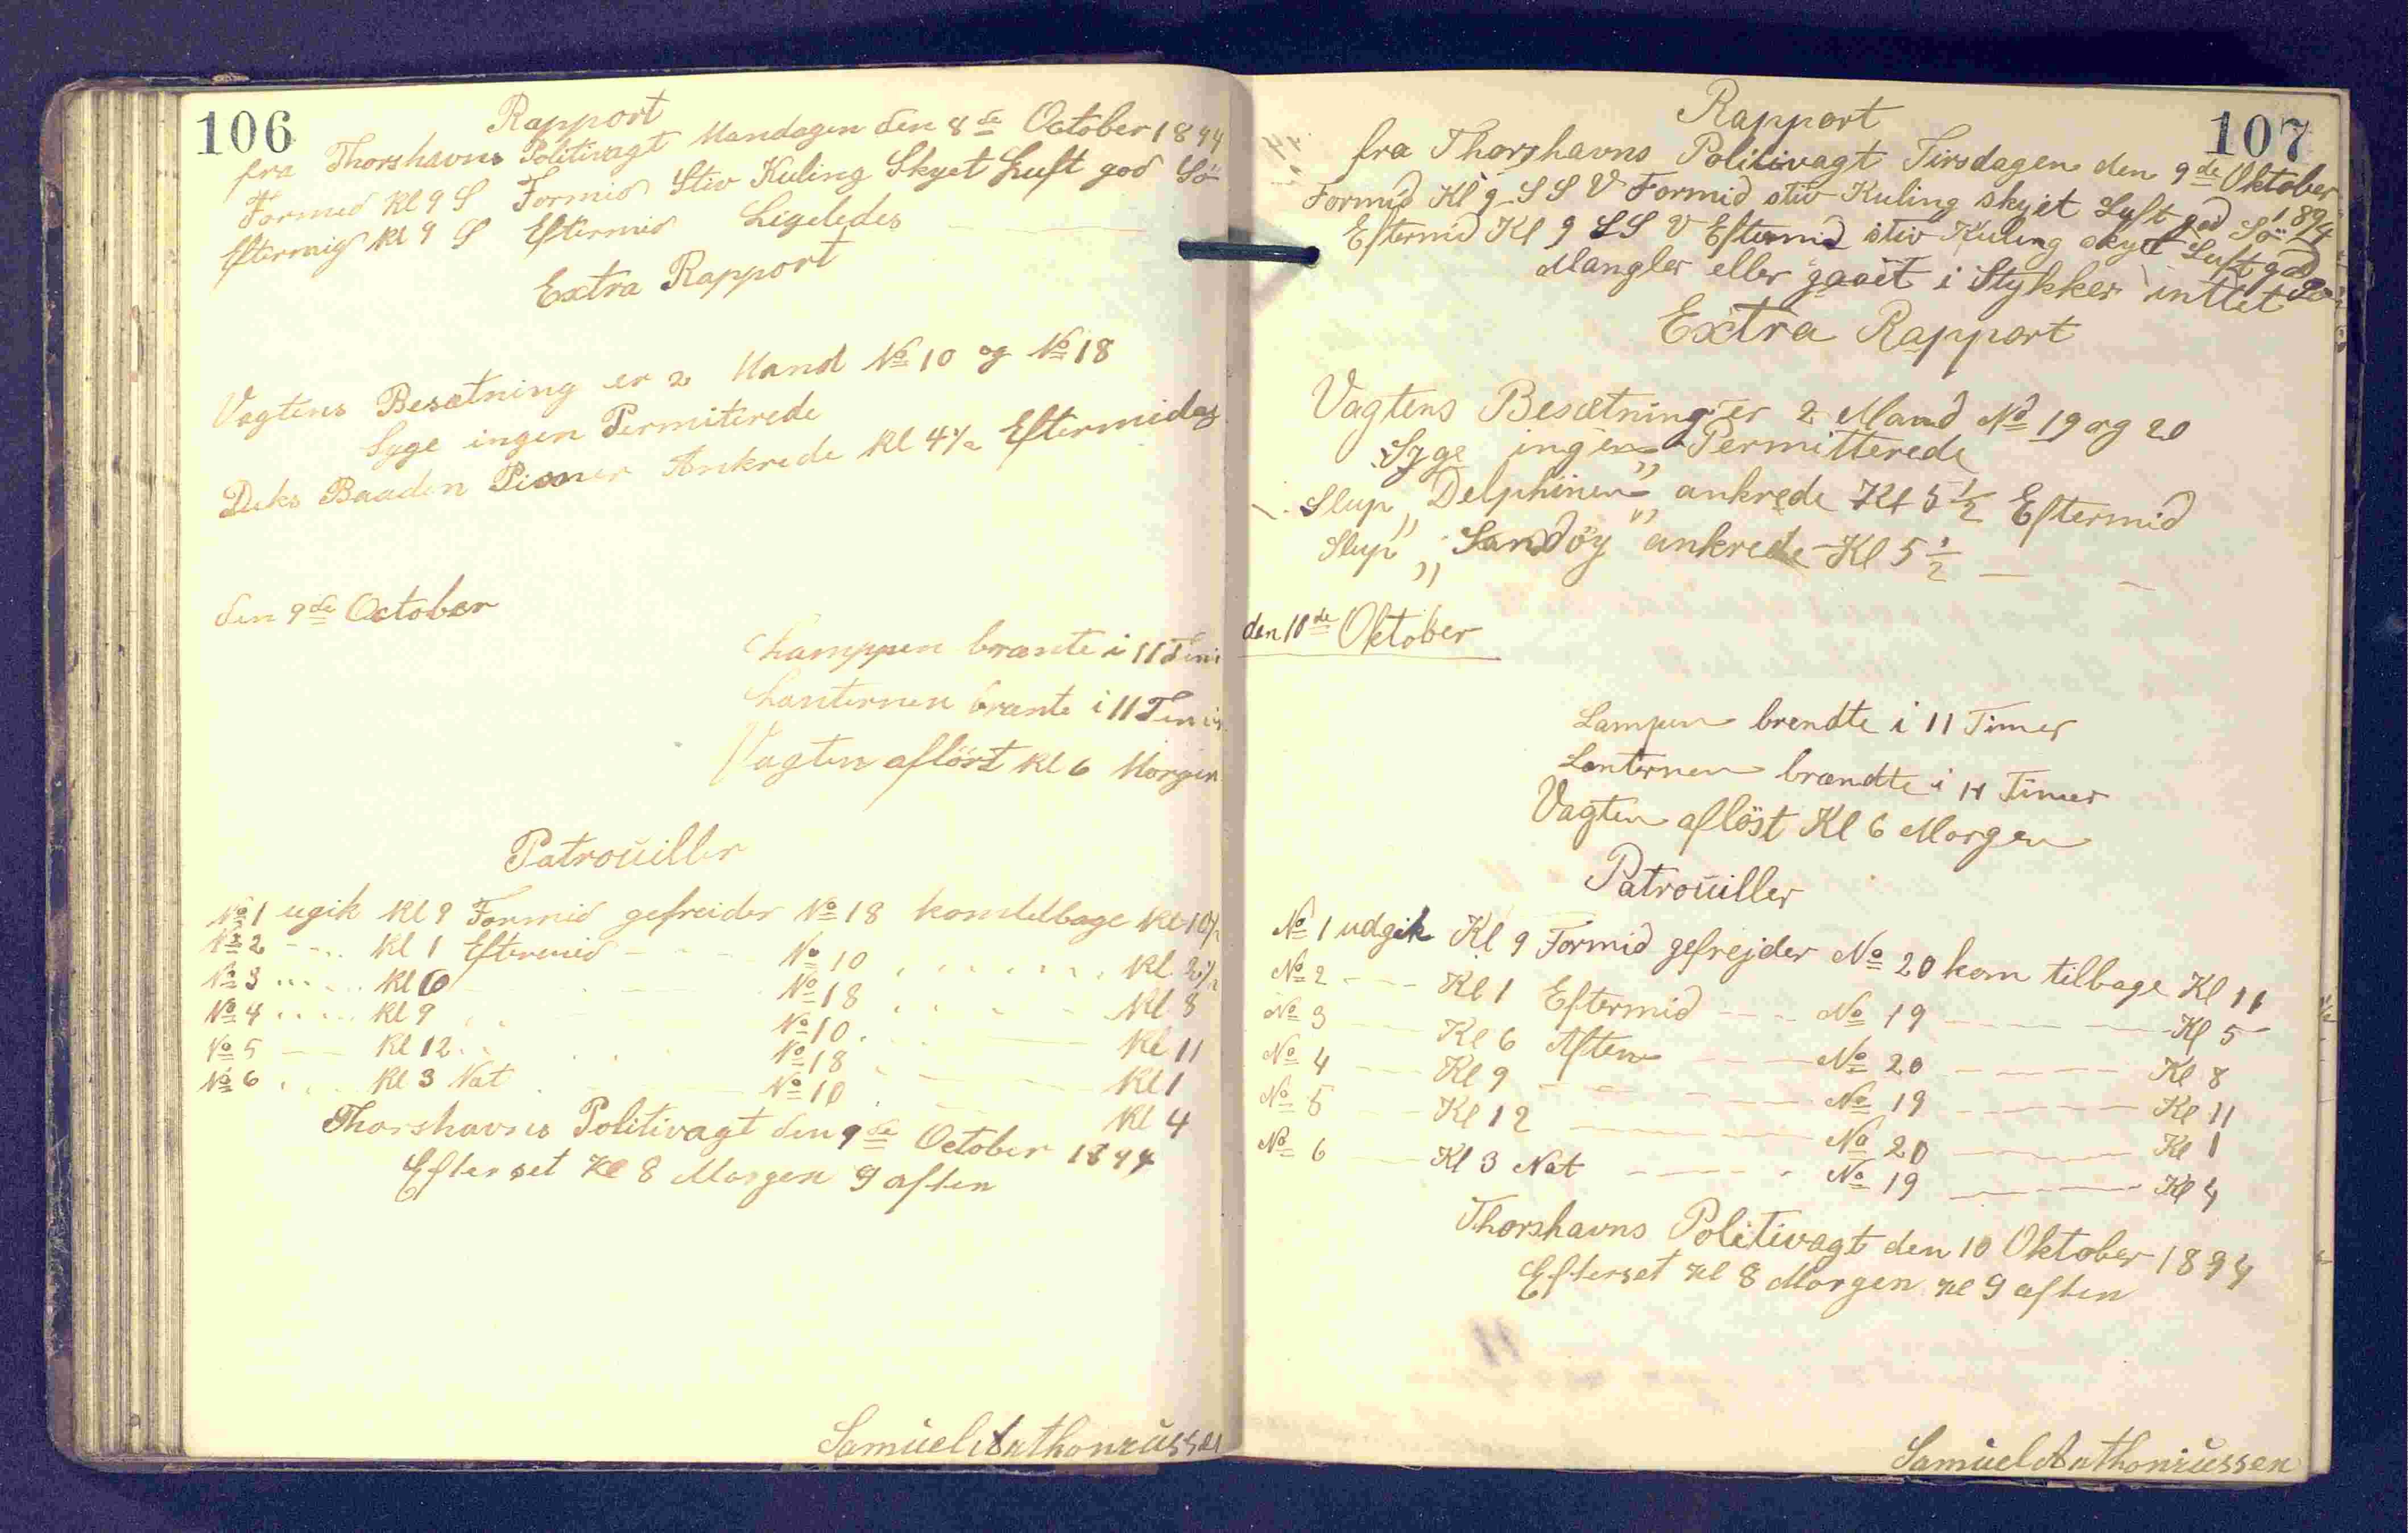 106
Rapport
fra Thorshavns Politivagt Mandagen den 8de October 1894
Formed Kl 9 S Formid Stiv Kuling Skyet Luft god Sö
Eftermid Kl 9 S Eftermid Ligeledes
Extra Rapport
Vagtens Besætning er 2 Mand No 10 og No 18
Syge ingen Permiterede
Deks Baaden Pioner Ankrede Kl 4½ Eftermidag
den 9de October
Lamppen brænte i 11 Timer
Lanternen brænte i 11 Timer
Vagten aflöst Kl 6 Morgen
Patroüiller
No 1 ugik Kl 9 Formid gefreider No 18 kom tilbage Kl 10½
No 2 - - - Kl 1 Eftermid - - - No 10 - - - Kl 2½
No 3 - - - Kl 6 - - - No 18 - - - Kl 8
No 4 - - - Kl 9 - - - No 10 - - - Kl 11
No 5 - - - Kl 12 - - - No 18 - - - Kl 1
No 6 - - - Kl 3 Nat - - - No 10 - - - Kl 4
Thorshavns Politivagt den 9de October 1894
Efterset Kl 8 Morgen 9 aften
Samüel Anthoniüssen
107
Rapport
fra Thorshavns Politivagt Tirsdagen den 9de Oktober
1894
Formid Kl 9 S S V Formid stiv Kuling skyet Luft god Sö
Eftermid Kl 9 S S V Eftermid stiv Kuling skyet Luft god Sö
Mangler eller gaaet i Stykker inttet
Extra Rapport
Vagtens Besætning er 2 Mand No 19 og 20
Syge ingen Permitterede
Slup „Delphinen" ankrede Kl 5½ Eftermid
Slup „Sandöy" ankrede Kl 5½ — —
den 10de Oktober
Lampen brendte i 11 Timer
Lanternen brændte i 11 Timer
Vagten aflöst Kl 6 Morgen
Patroüiller
No 1 udgik Kl 9 Formid gefrejder No 20 kom tilbage Kl 11
No 2 - - - Kl 1 Eftermid - - - No 19 - - - Kl 5
No 3 - - - Kl 6 Aften - - - No 20 - - - Kl 8
No 4 - - - Kl 9 - - - No 19 - - - Kl 11
No 5 - - - Kl 12 - - - No 20 - - - Kl 1
No 6 - - - Kl 3 Nat - - - No 19 - - - Kl 4
Thorshavns Politivagt den 10 Oktober 1894
Efterset Kl 8 Morgen Kl 9 aften
Samüel Anthoniüssen